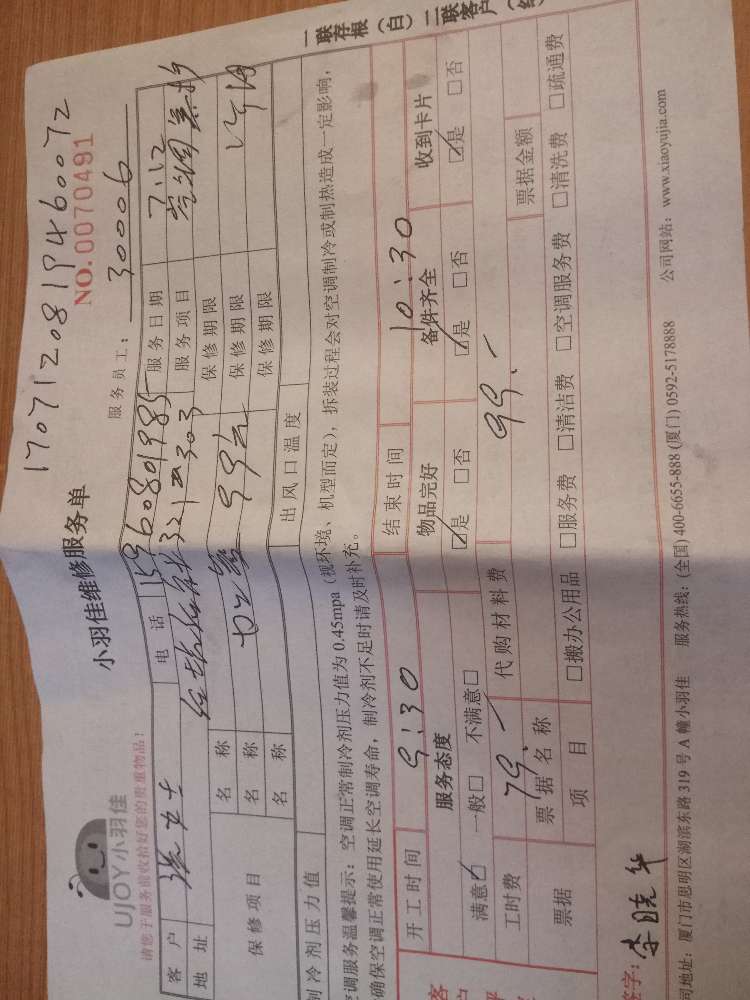 1707120819460072
UJOY 小羽佳
小羽佳维修服务单
NO.0070491
请您于服务前收拾好您的贵重物品!
服务员工: 30006
一联存根(白) 二联客户(红
客户 电话 15960801985 服务日期 7.12
地址 321#303 服务项目 空调
保修项目 名称 保修期限
名称 99元 保修期限
名称 保修期限
制冷剂压力值 出风口温度
空调服务温馨提示:空调正常制冷剂压力值为 0.45mpa(视环境、机型而定),拆装过程会对空调制冷或制热造成一定影响,
确保空调正常使用延长空调寿命,制冷剂不足时请及时补充。
开工时间 9:30 结束时间 10:30
服务态度 物品完好 备件齐全 收到卡片
满意☑ 一般□ 不满意□ ☑是 □否 ☑是 □否 ☑是 □否
工时费 79.- 代购材料费 99.-
票据 票据名称 票据金额
项目 □搬办公用品 □服务费 □清洁费 □空调服务费 □清洗费 □疏通费
签字: 李晓华
司地址:厦门市思明区湖滨东路 319 号 A 幢小羽佳 服务热线:(全国) 400-6655-888 (厦门) 0592-5178888 公司网站:www.xiaoyujia.com